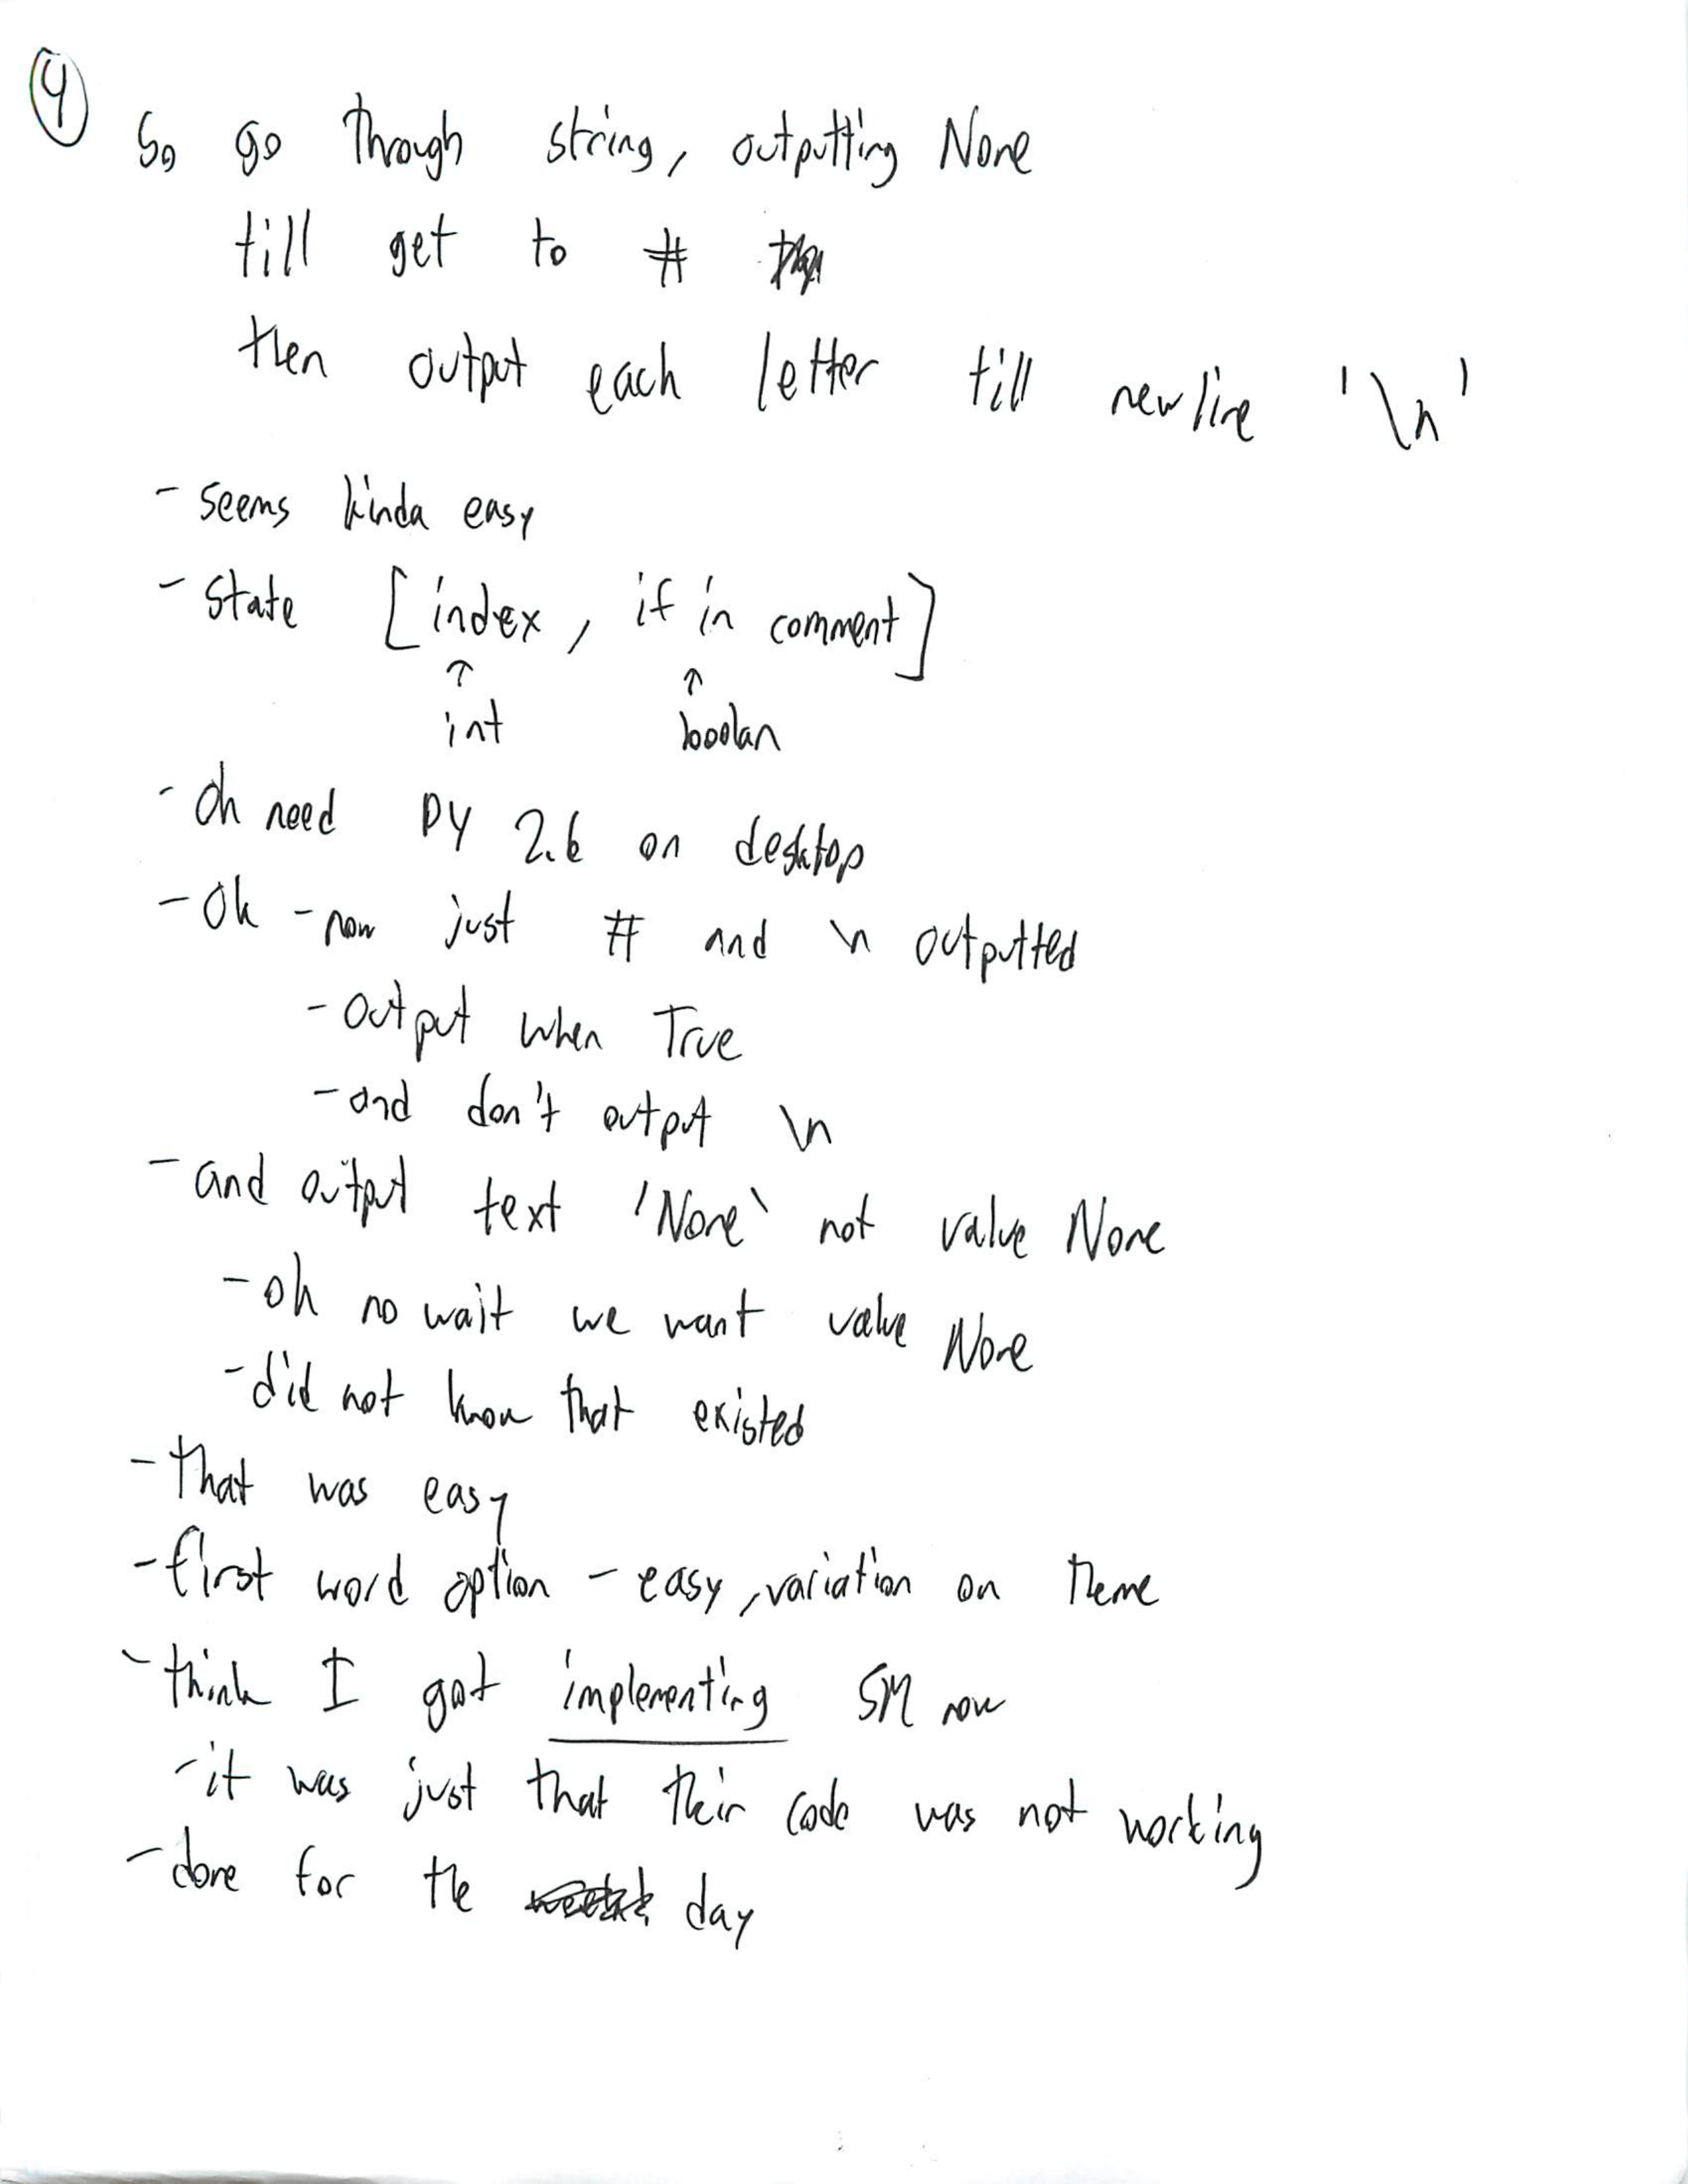 4
So go through string, outputting None
till get to #
then output each letter till newline '\n'
- seems kinda easy
- state [index, if in comment]
↑ ↑
int boolan
- oh need py 2.6 on desktop
- Ok - now just # and \n outputted
- output when True
- and don't output \n
- and output text 'None' not value None
- oh no wait we want value None
- did not know that existed
- that was easy
- first word option - easy, variation on theme
- think I got implementing SM now
- it was just that their code was not working
- done for the day